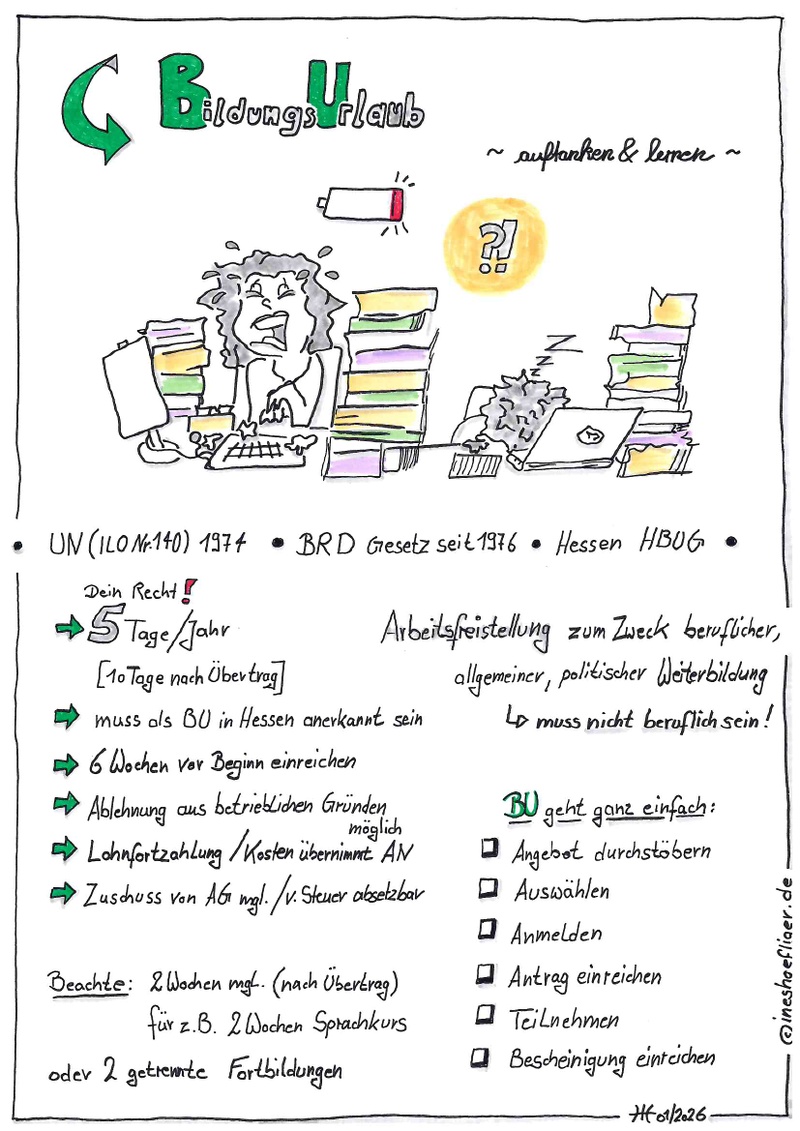 BildungsUrlaub
~ auftanken & lernen ~
?!
Z Z Z
• UN (ILO Nr. 140) 1974 • BRD Gesetz seit 1976 • Hessen HBUG •
Dein Recht!
5 Tage/Jahr
[10 Tage nach Übertrag]
muss als BU in Hessen anerkannt sein
6 Wochen vor Beginn einreichen
Ablehnung aus betrieblichen Gründen
möglich
Lohnfortzahlung / Kosten übernimmt AN
Zuschuss von AG mgl. / v. Steuer absetzbar
Beachte: 2 Wochen mgl. (nach Übertrag)
für z.B. 2 Wochen Sprachkurs
oder 2 getrennte Fortbildungen
Arbeitsfreistellung zum Zweck beruflicher,
allgemeiner, politischer Weiterbildung
↳ muss nicht beruflich sein!
BU geht ganz einfach:
Angebot durchstöbern
Auswählen
Anmelden
Antrag einreichen
Teilnehmen
Bescheinigung einreichen
©ineshoefliger.de
01/2026